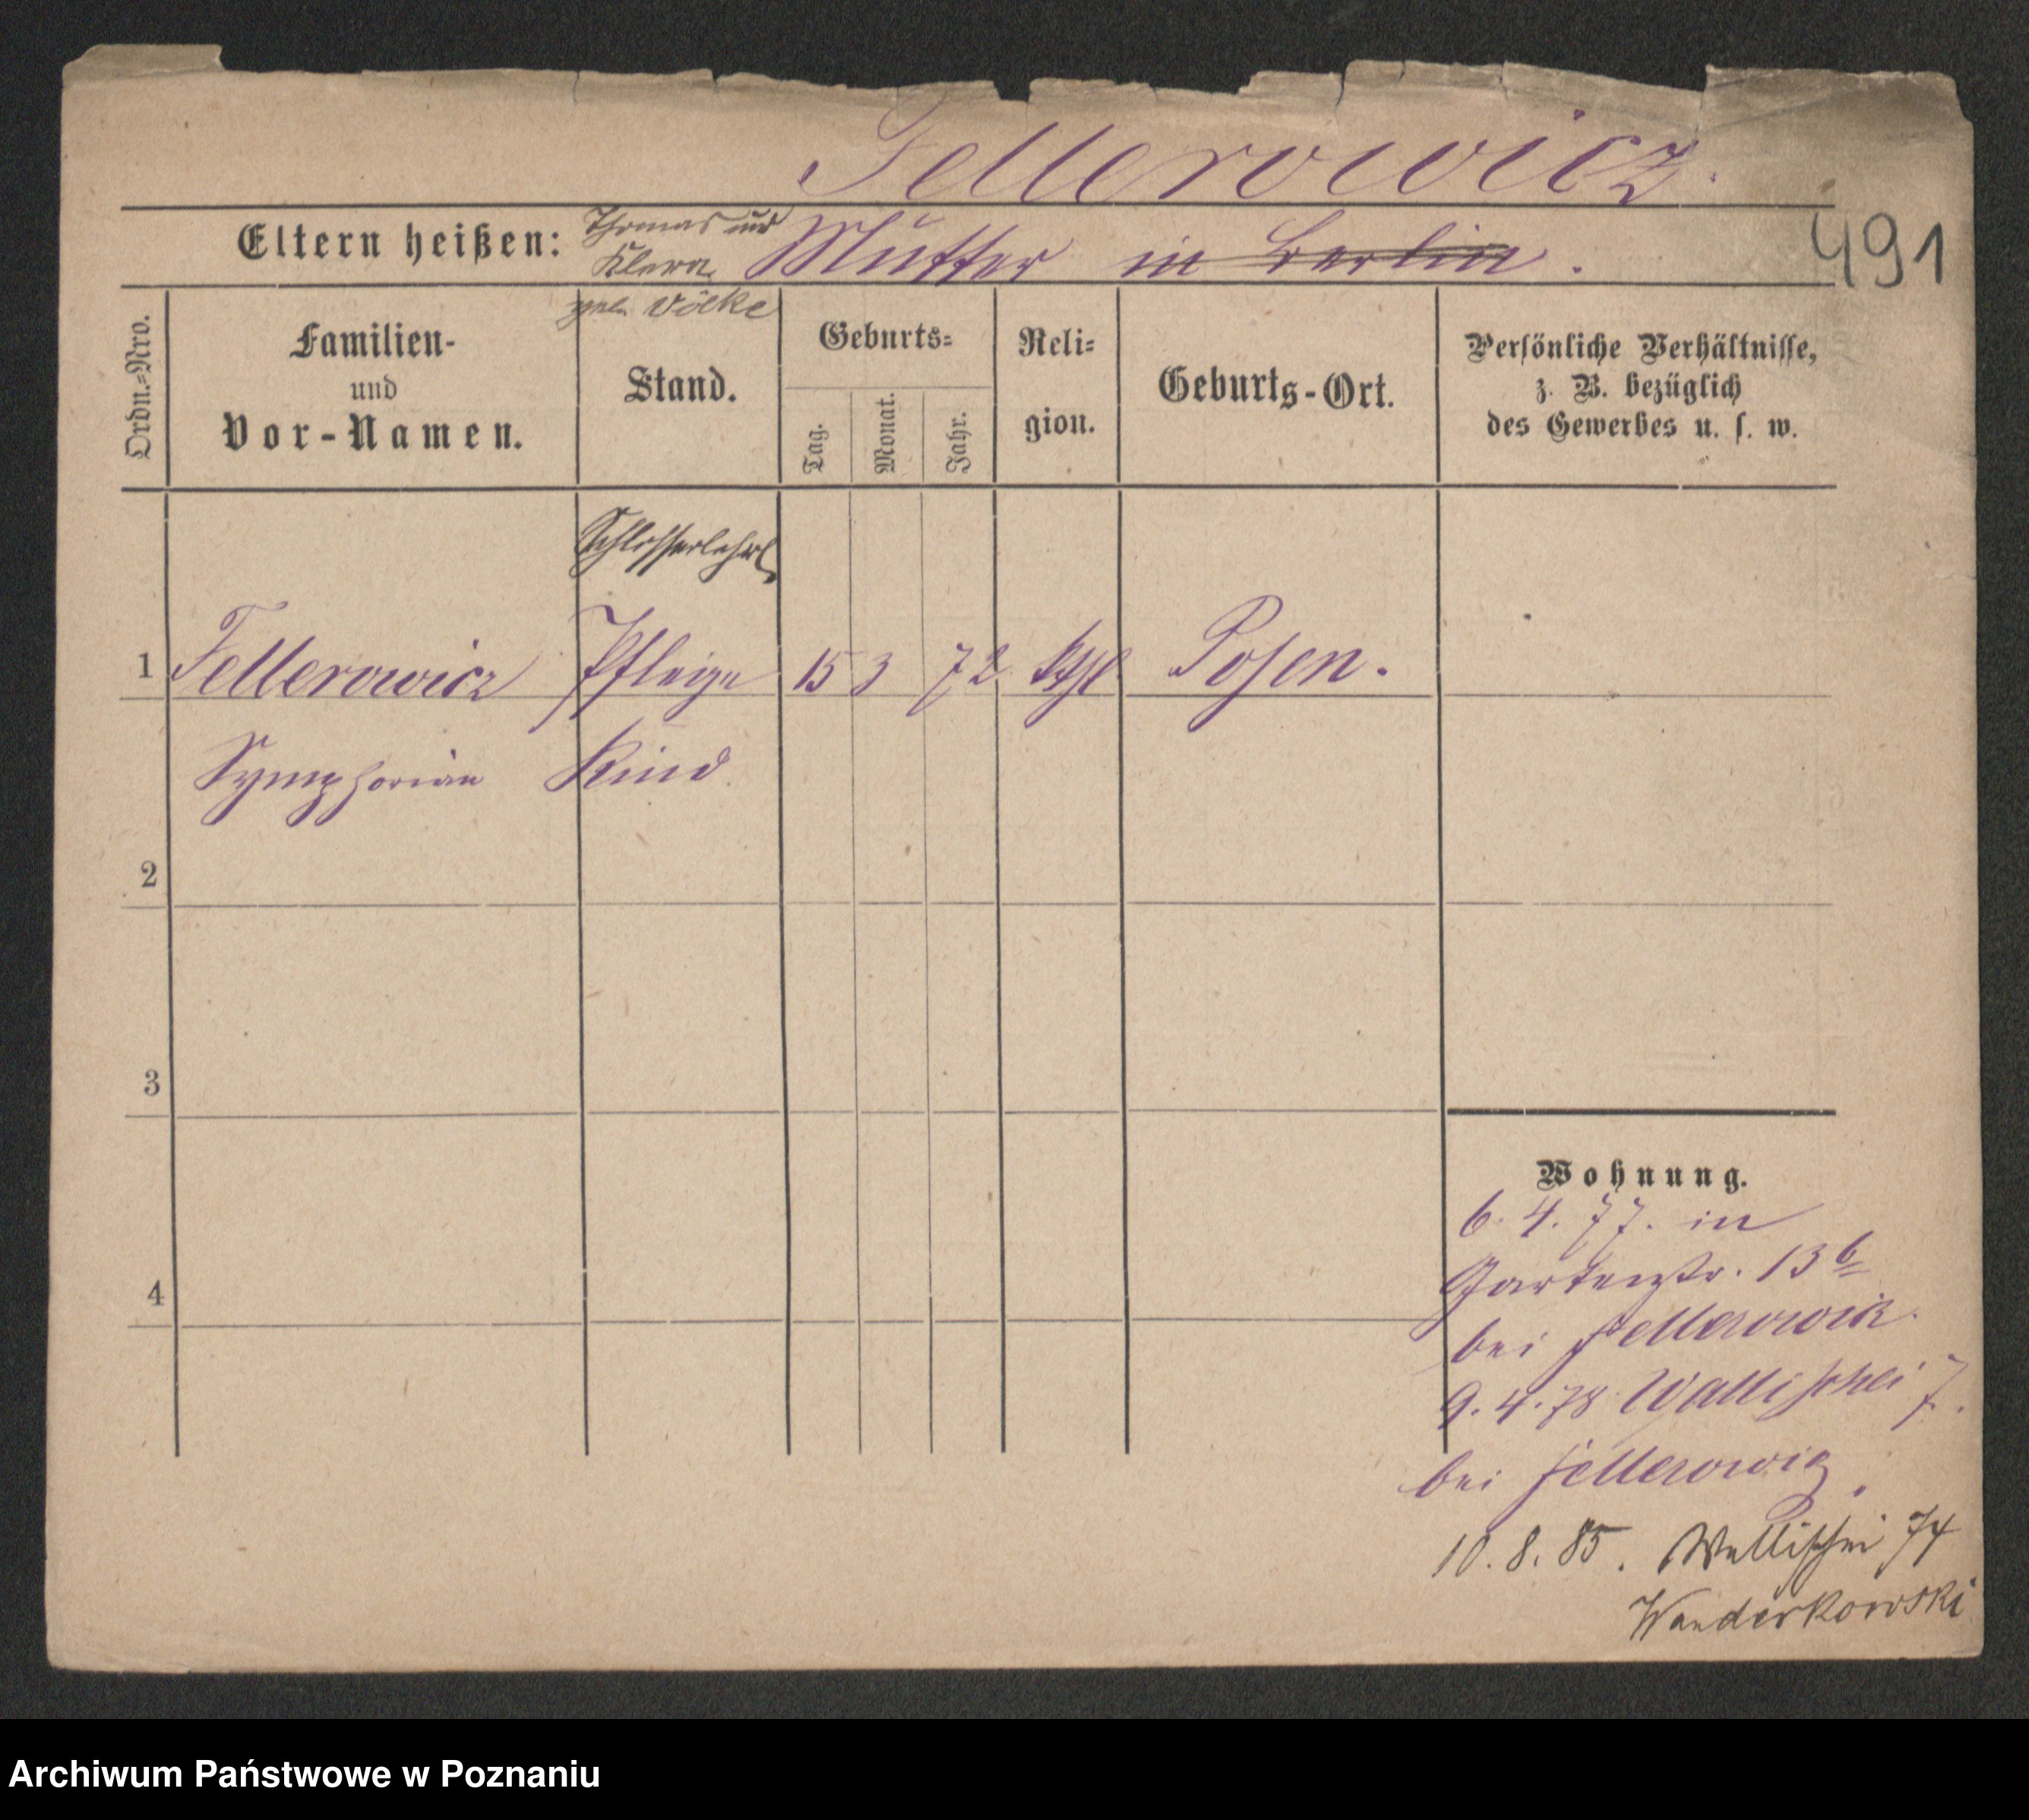 Fellerowicz.
491
Eltern heißen: Thomas und Mutter in Berlin.
Klara
geb. Völke
Ordn.=Nro.
Familien-
und
Vor-Namen.
Stand.
Geburts=
Tag.
Monat.
Jahr.
Reli=
gion.
Geburts-Ort.
Persönliche Verhältnisse,
z. B. bezüglich
des Gewerbes u. s. w.
Schlosserlehrl
1 Fellerowicz Pflege 15 3 72 kthl Posen.
Symphorian Kind
2
3
4
Wohnung.
6. 4. 77. in
Gartenstr. 13 b
bei Fellerowicz.
9. 4. 78 Wallischei 7.
bei Fellerowicz.
10. 8. 85. Wallischei 74
Wanderkowski
Archiwum Państwowe w Poznaniu